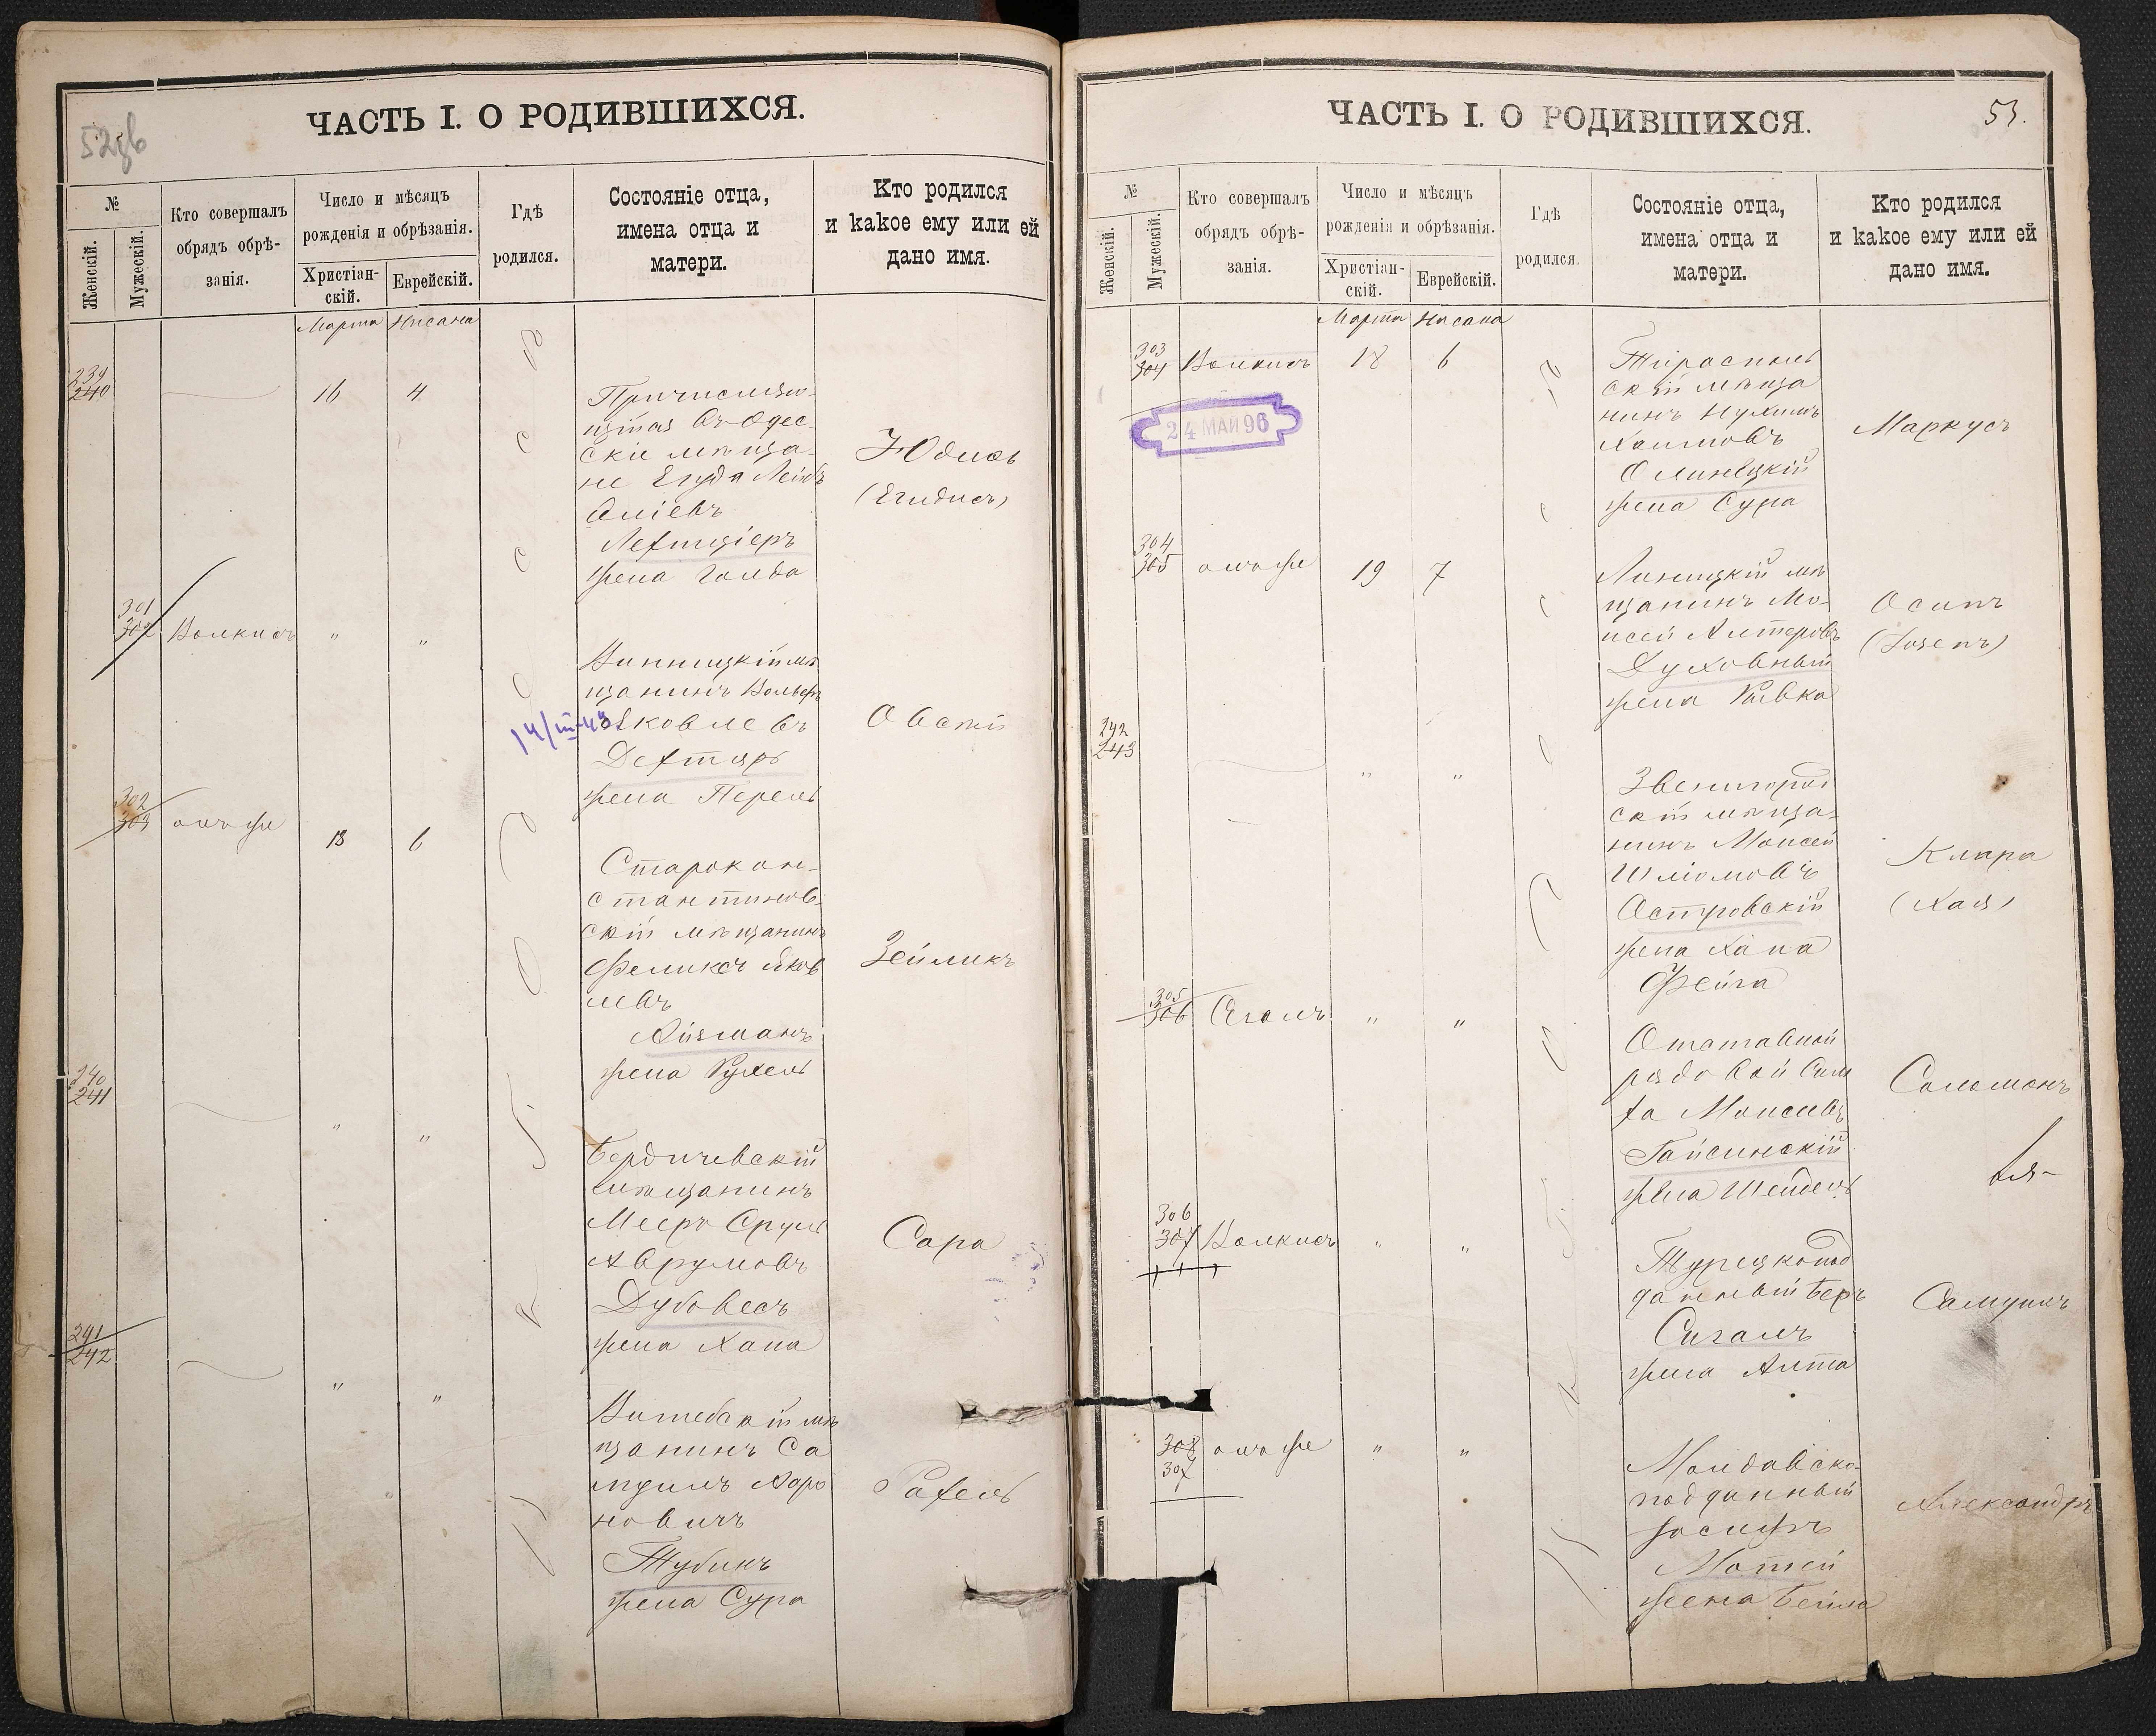 52зв
ЧАСТЬ I. О РОДИВШИХСЯ.
№
Женскій.
Мужескій.
Кто совершалъ
обрядъ обрѣ-
занія.
Число и мѣсяцъ
рожденія и обрѣзанія.
Христіан-
скій.
Еврейскій.
Гдѣ
родился.
Состояніе отца,
имена отца и
матери.
Кто родился
и какое ему или ей
дано имя.
Марта Нисана
239
240
16 4
Причисляю-
щійся въ Одес-
скіе мѣща-
не Егуда Лейбъ
жена Голда
Юдись
(Егидись)
301
302
Волкисъ " "
Винницкій мѣ
щанинъ Вольфъ
Яковлевъ
Дехтяръ
жена Перель
Овсей
14/III-49
302
303
онъ же 18 6
Старокон-
стантинов-
скій мѣщанинъ
Феликсъ Яков
левъ
Айзманъ
жена Рухель
Зейликъ
240
241
" "
Бердичевскій
мѣщанинъ
Мееръ Сруль
Аврумовъ
Дубовесъ
жена Хана
Сара
241
242
" "
Витебскій мѣ
щанинъ Са
муилъ Ааро
новичъ
Тубинъ
жена Сура
Рахель
53.
ЧАСТЬ I. О РОДИВШИХСЯ.
№
Женскій.
Мужескій.
Кто совершалъ
обрядъ обрѣ-
занія.
Число и мѣсяцъ
рожденія и обрѣзанія.
Христіан-
скій.
Еврейскій.
Гдѣ
родился.
Состояніе отца,
имена отца и
матери.
Кто родился
и какое ему или ей
дано имя.
Марта Нисана
303
304
Волкисъ 18 6
24 МАЙ 96
Тирасполь
скій мѣща
нинъ Нухимъ
Хаимовъ
Олинецкій
жена Сура
Маркусъ
304
305
онъ же 19 7
Липецкій мѣ
щанинъ Мо-
исей Алтеровъ
Духовный
жена Ривка
Осипъ
(Іозепъ)
242
243
" "
Звенигород
скій мѣща-
нинъ Моисей
Шліомовъ
Островскій
жена Хана
Фейга
Клара
(Хая)
305
306
Сегалъ " "
Отставной
рядовой Сим
ха Моисеевъ
Гайсинскій
жена Шейдель
Соломонъ
306
307
Волкисъ " "
Турецкопод
данный Беръ
Сигалъ
жена Алта
Самуилъ
308
307
онъ же " "
Молдавско-
подданный
Іосифъ
Мотей
жена Бейла
Александръ